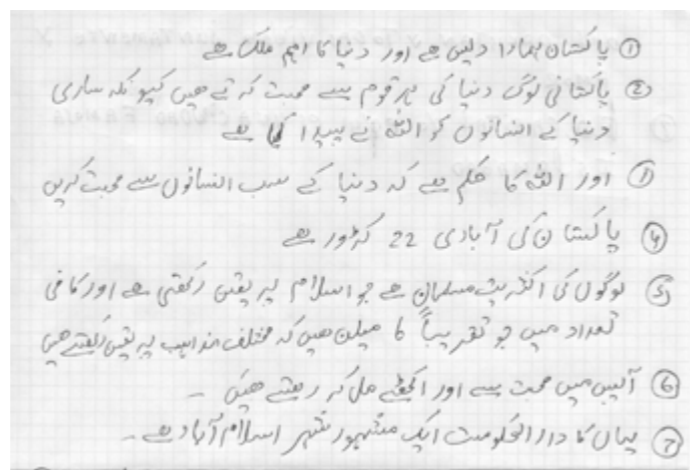 ① پاکستان ہمارا دیس ہے اور دنیا کا اہم ملک ہے
② پاکستانی لوگ دنیا کی ہر قوم سے محبت کرتے ہیں کیونکہ ساری
دنیا کے انسانوں کو اللہ نے پیدا کیا ہے
① اور اللہ کا حکم ہے کہ دنیا کے سب انسانوں سے محبت کریں
④ پاکستان کی آبادی 22 کروڑ ہے
⑤ لوگوں کی اکثریت مسلمان ہے جو اسلام پر یقین رکھتی ہے اور کافی
تعداد میں جو تقریباً 6 میلن ہیں کہ مختلف مذاہب پر یقین رکھتے ہیں
⑥ آپس میں محبت سے اور اکھٹے مل کر رہتے ہیں ۔
⑦ یہاں کا دارالحکومت ایک مشہور شہر اسلام آباد ہے ۔